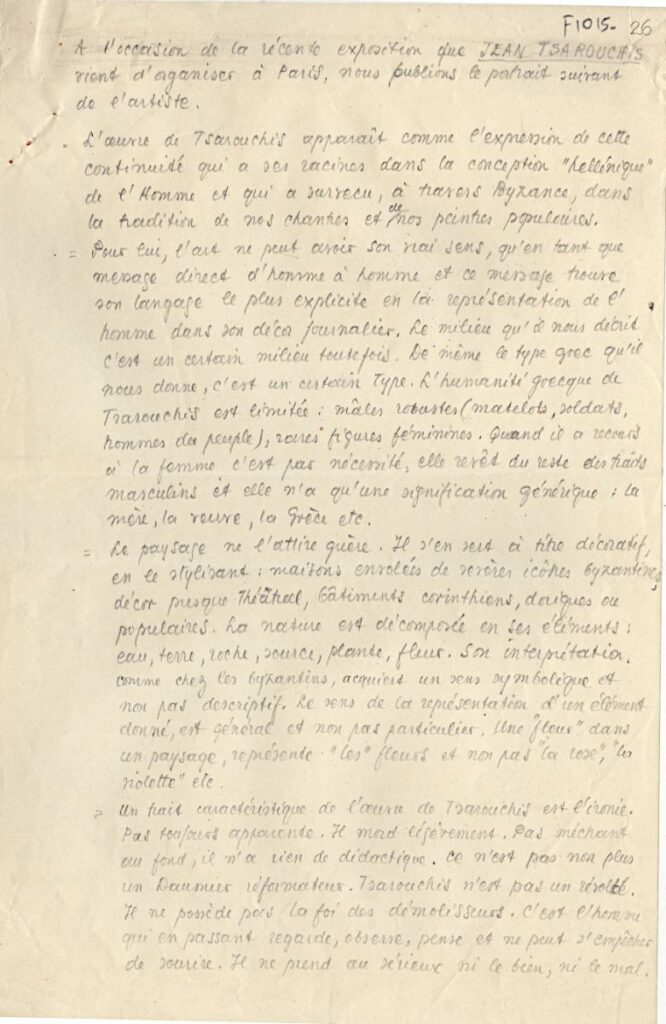 F1015- 26
A l'occasion de la récente exposition que JEAN TSAROUCHIS
vient d'organiser à Paris, nous publions le portrait suivant
de l'artiste.
. L'œuvre de Tsarouchis apparaît comme l'expression de cette
continuité qui a ses racines dans la conception "hellénique"
de l'Homme et qui a survécu, à travers Byzance, dans
la tradition de nos chantres et de nos peintres populaires.
= Pour lui, l'art ne peut avoir son vrai sens, qu'en tant que
message direct d'homme à homme et ce message trouve
son langage le plus explicite en la représentation de l'
homme dans son décor journalier. Le milieu qu'il nous décrit
c'est un certain milieu toutefois. De même le type grec qu'il
nous donne, c'est un certain Type. L'humanité grecque de
Tsarouchis est limitée : mâles robustes (matelots, soldats,
hommes du peuple), rares figures féminines. Quand il a recours
à la femme c'est par nécessité, elle revêt du reste des traits
masculins et elle n'a qu'une signification générique : la
mère, la veuve, la Grèce etc.
= Le paysage ne l'attire guère. Il s'en sert à titre décoratif,
en le stylisant : maisons envolées de sévères icônes byzantines,
décor presque théâtral, bâtiments corinthiens, doriques ou
populaires. La nature est décomposée en ses éléments :
eau, terre, roche, source, plante, fleur. Son interprétation,
comme chez les byzantins, acquiert un sens symbolique et
non pas descriptif. Le sens de la représentation d'un élément
donné, est général et non pas particulier. Une "fleur" dans
un paysage, représente "les" fleurs et non pas "la rose", "la
violette" etc.
= Un trait caractéristique de l'œuvre de Tsarouchis est l'ironie.
Pas toujours apparente. Il mord légèrement. Pas méchant
au fond, il n'a rien de didactique. Ce n'est pas non plus
un Daumier réformateur. Tsarouchis n'est pas un révolté.
Il ne possède pas la foi des démolisseurs. C'est l'homme
qui en passant regarde, observe, pense et ne peut s'empêcher
de sourire. Il ne prend au sérieux ni le bien, ni le mal.